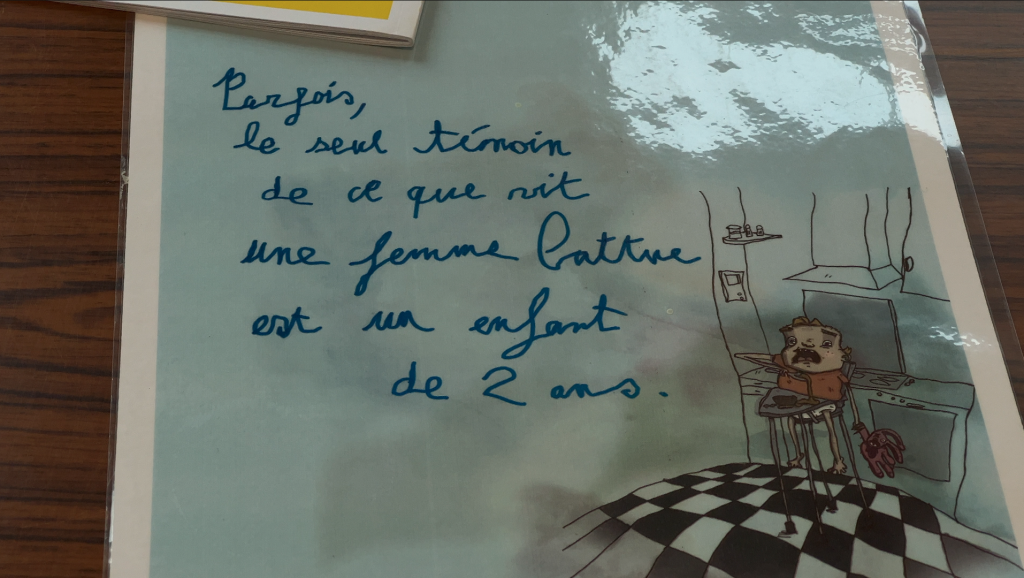 Parfois,
le seul témoin
de ce que vit
une femme battue
est un enfant
de 2 ans.